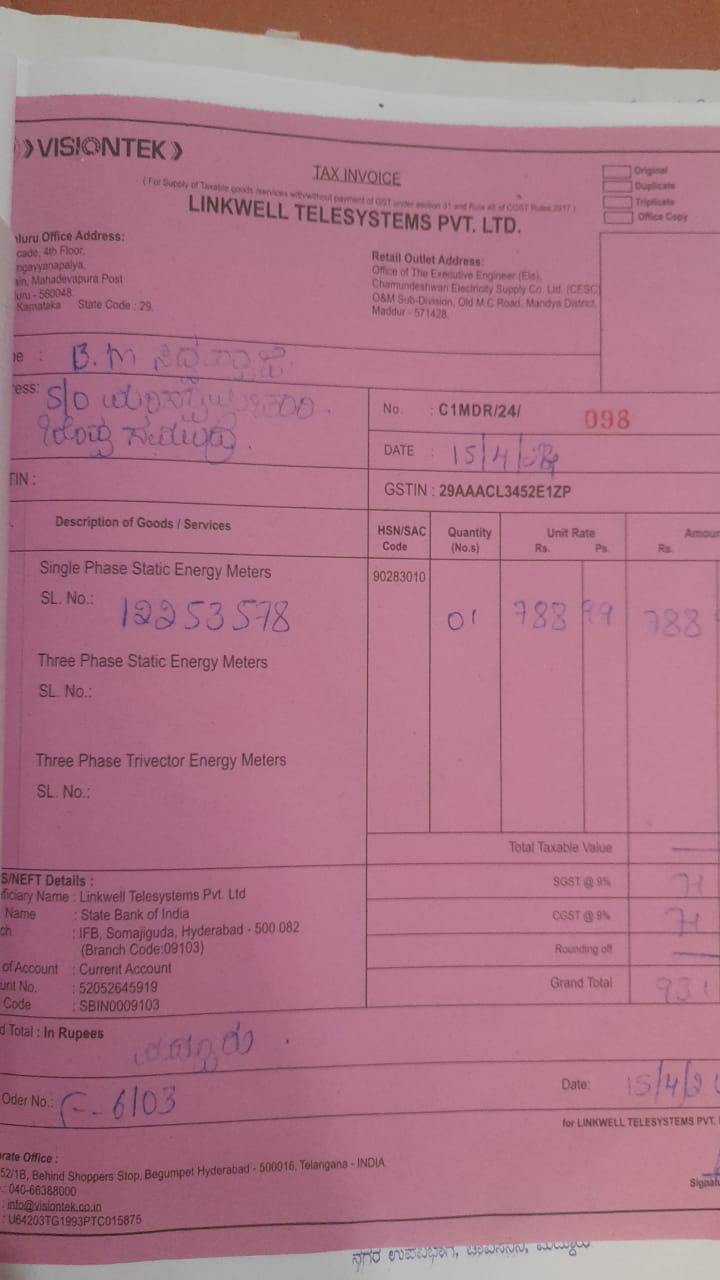 VISIONTEK
TAX INVOICE
( For Supply of Taxable goods /services with/without payment of GST under section 31 and Rule 46 of CGST Rules 2017 )
LINKWELL TELESYSTEMS PVT. LTD.
Original
Duplicate
Triplicate
Office Copy
luru Office Address:
cade, 4th Floor,
ngayyanapalya,
ain, Mahadevapura Post
uru - 560048.
Karnataka State Code : 29
Retail Outlet Address:
Office of The Executive Engineer (Ele),
Chamundeshwari Electricity Supply Co. Ltd. (CESC)
O&M Sub-Division, Old M.C Road, Mandya District,
Maddur - 571428.
e : B.M
ess: S/O
No. : C1MDR/24/ 098
DATE : 15/4/
TIN :
GSTIN : 29AAACL3452E1ZP
Description of Goods / Services HSN/SAC Code Quantity (No.s) Unit Rate Rs. Ps. Amou Rs.
Single Phase Static Energy Meters 90283010
SL. No.: 12253578 01 788 99 788
Three Phase Static Energy Meters
SL. No.:
Three Phase Trivector Energy Meters
SL. No.:
Total Taxable Value
SGST @ 9% 71
CGST @ 9% 71
Rounding off
Grand Total 931
S/NEFT Details :
ficiary Name : Linkwell Telesystems Pvt. Ltd
Name : State Bank of India
ch : IFB, Somajiguda, Hyderabad - 500 082
(Branch Code:09103)
of Account : Current Account
unt No. : 52052645919
Code : SBIN0009103
d Total : In Rupees
Oder No.: 6103
Date: 15/4/2
for LINKWELL TELESYSTEMS PVT.
rate Office :
52/1B, Behind Shoppers Stop, Begumpet Hyderabad - 500016, Telangana - INDIA
.: 040-66388000
: info@visiontek.co.in
: U64203TG1993PTC015875
Signat
ನಗರ ಉಪವಿಭಾಗ,